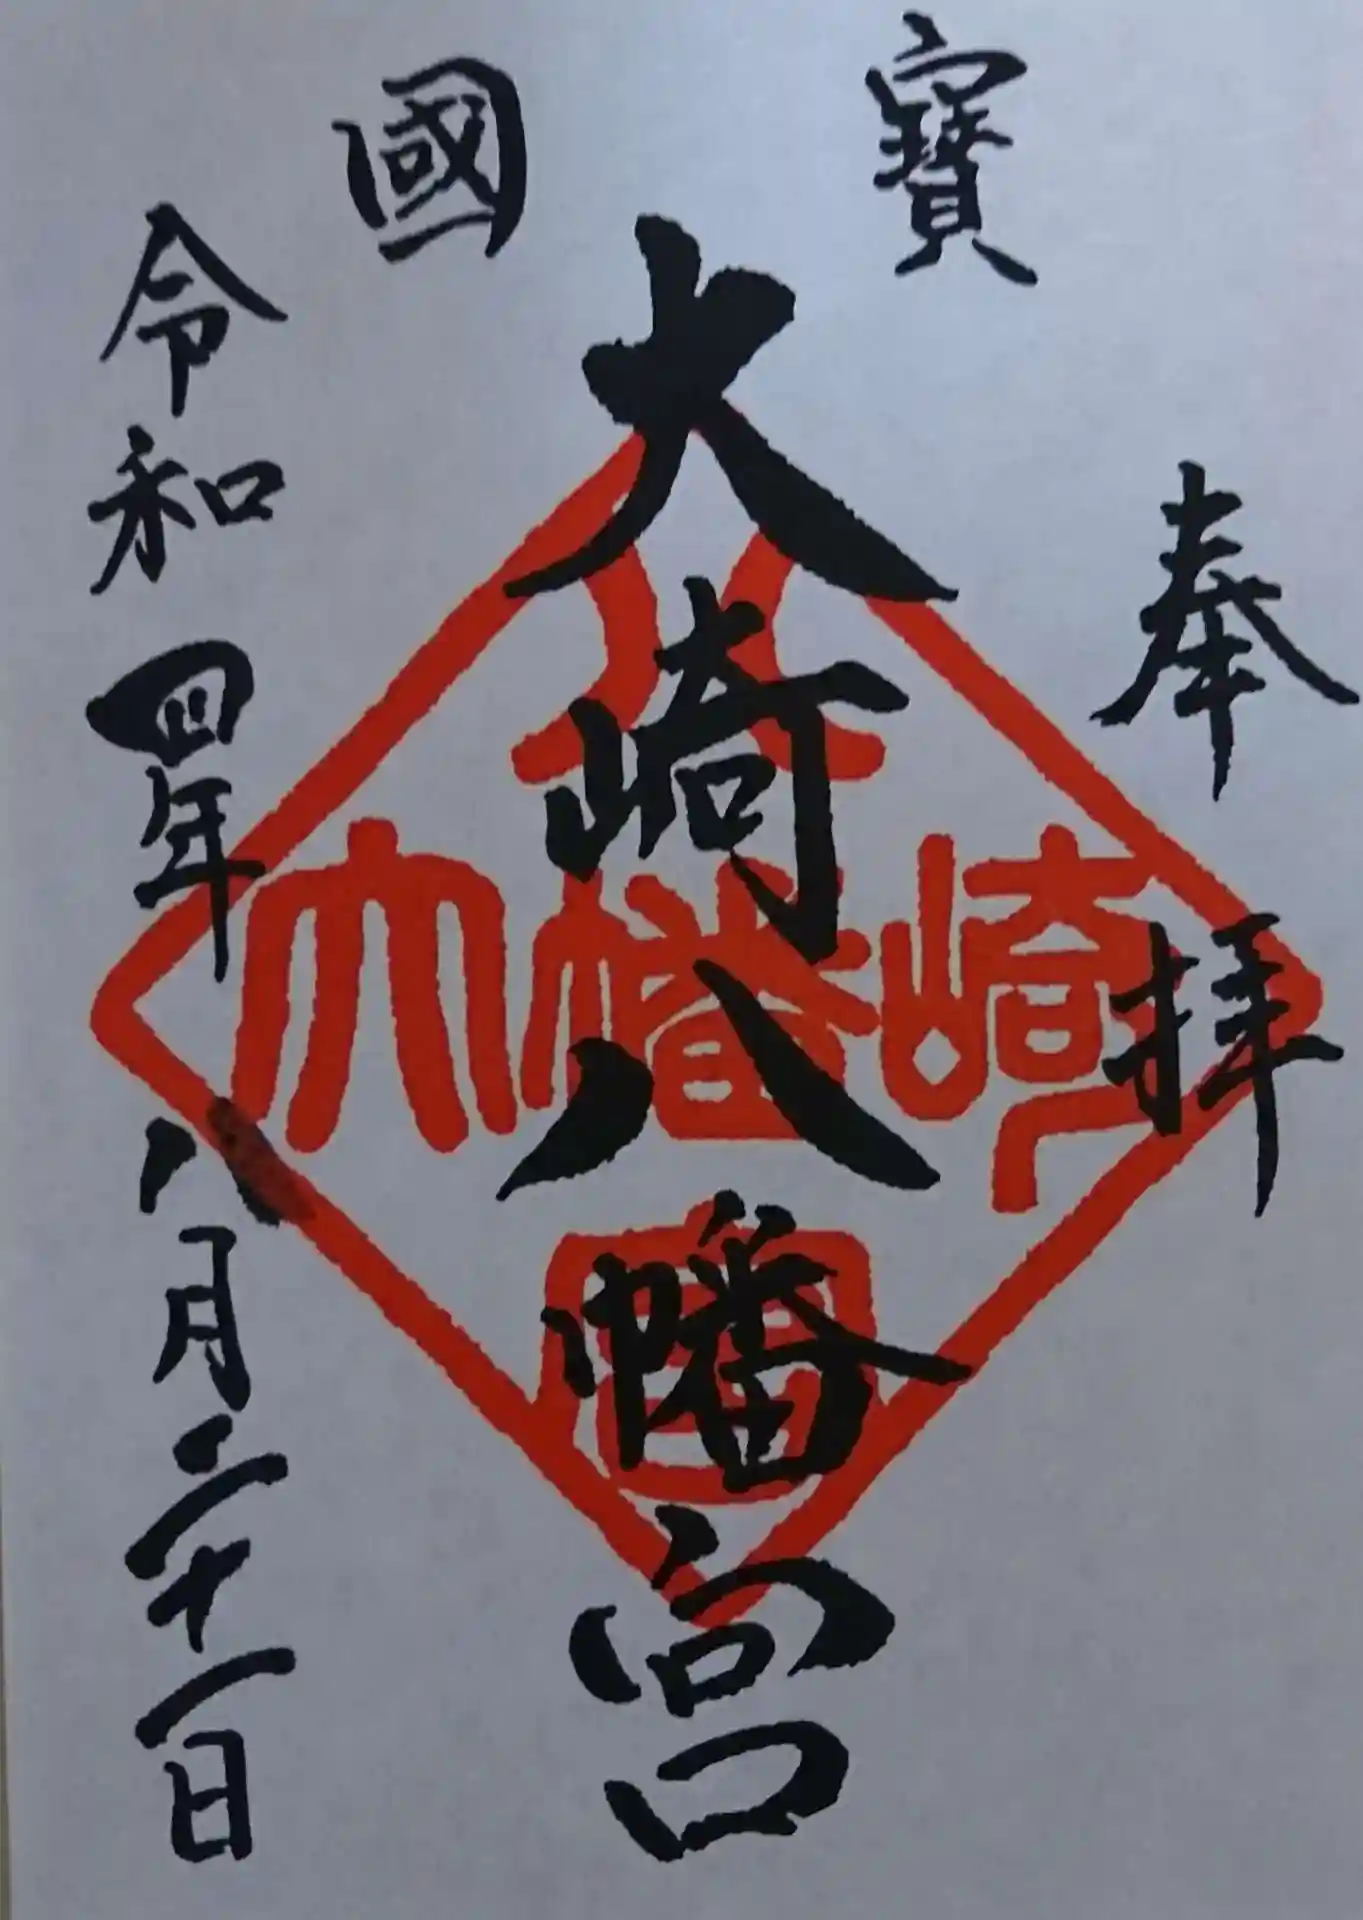 國寶
奉拝
大崎八幡宮
令和四年八月二十一日
八
大幡崎
宮